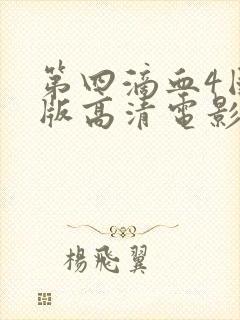 第四滴血4国
版高清电影
楊飛翼